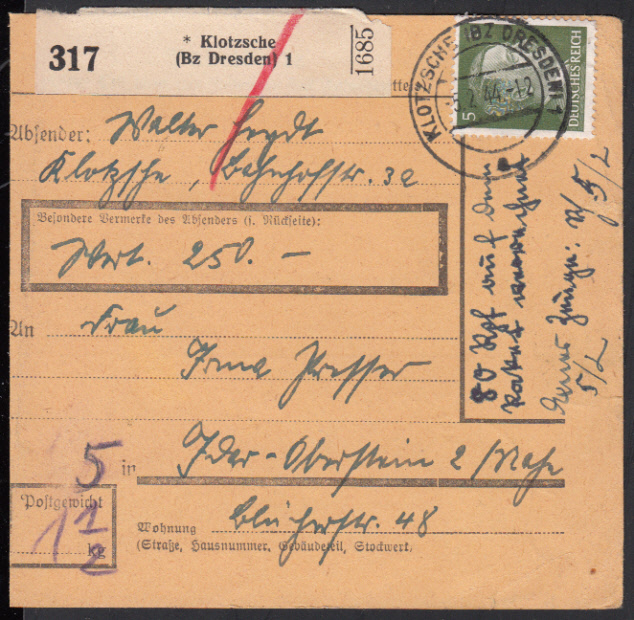 317
* Klotzsche
(Bz Dresden) 1
1685
KLOTZSCHE (BZ DRESDEN) 1
5.2.44.-12
5
DEUTSCHES REICH
Absender: Walter
Klotzsche, Bahnhofstr. 32
Besondere Vermerke des Absenders (s. Rückseite):
Wert. 250. –
An Frau
Irma Presser
5 in Idar-Oberstein 2 / Nahe
Postgewicht
1 1/2 kg
Wohnung Blücherstr. 48
(Straße, Hausnummer, Gebäudeteil, Stockwerk)
80 Rpf auf dem
Paket verrechnet
5/2
5/2